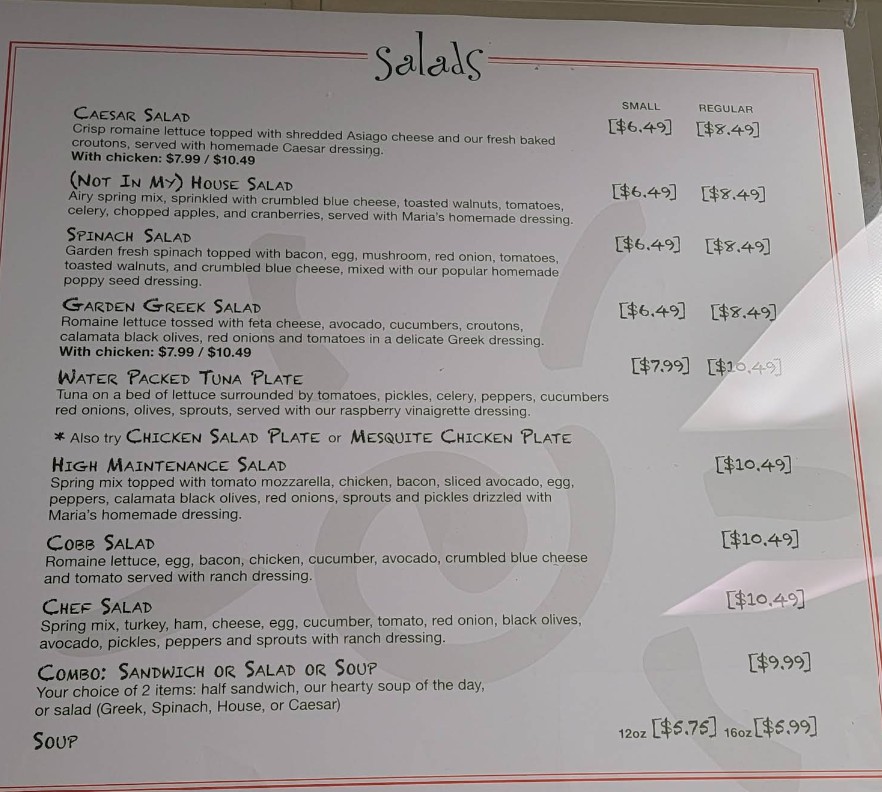 Salads
SMALL REGULAR
CAESAR SALAD [$6.49] [$8.49]
Crisp romaine lettuce topped with shredded Asiago cheese and our fresh baked
croutons, served with homemade Caesar dressing.
With chicken: $7.99 / $10.49
(NOT IN MY) HOUSE SALAD [$6.49] [$8.49]
Airy spring mix, sprinkled with crumbled blue cheese, toasted walnuts, tomatoes,
celery, chopped apples, and cranberries, served with Maria's homemade dressing.
SPINACH SALAD [$6.49] [$8.49]
Garden fresh spinach topped with bacon, egg, mushroom, red onion, tomatoes,
toasted walnuts, and crumbled blue cheese, mixed with our popular homemade
poppy seed dressing.
GARDEN GREEK SALAD [$6.49] [$8.49]
Romaine lettuce tossed with feta cheese, avocado, cucumbers, croutons,
calamata black olives, red onions and tomatoes in a delicate Greek dressing.
With chicken: $7.99 / $10.49
WATER PACKED TUNA PLATE [$7.99] [$10.49]
Tuna on a bed of lettuce surrounded by tomatoes, pickles, celery, peppers, cucumbers
red onions, olives, sprouts, served with our raspberry vinaigrette dressing.
* Also try CHICKEN SALAD PLATE or MESQUITE CHICKEN PLATE
HIGH MAINTENANCE SALAD [$10.49]
Spring mix topped with tomato mozzarella, chicken, bacon, sliced avocado, egg,
peppers, calamata black olives, red onions, sprouts and pickles drizzled with
Maria's homemade dressing.
COBB SALAD [$10.49]
Romaine lettuce, egg, bacon, chicken, cucumber, avocado, crumbled blue cheese
and tomato served with ranch dressing.
CHEF SALAD [$10.49]
Spring mix, turkey, ham, cheese, egg, cucumber, tomato, red onion, black olives,
avocado, pickles, peppers and sprouts with ranch dressing.
COMBO: SANDWICH OR SALAD OR SOUP [$9.99]
Your choice of 2 items: half sandwich, our hearty soup of the day,
or salad (Greek, Spinach, House, or Caesar)
SOUP 12oz [$5.75] 16oz [$5.99]